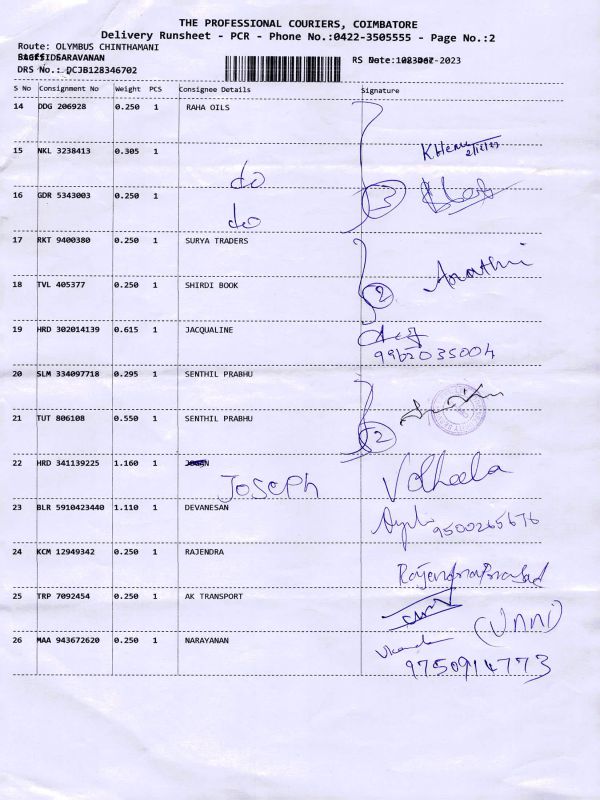 THE PROFESSIONAL COURIERS, COIMBATORE
Delivery Runsheet - PCR - Phone No.:0422-3505555 - Page No.:2
Route: OLYMBUS CHINTHAMANI
SARAVANAN
DRS No.: DCJB128346702
S No Consignment No Weight PCS Consignee Details Signature
14 DDG 206928 0.250 1 RAHA OILS
15 NKL 3238413 0.305 1 do
16 GDR 5343003 0.250 1 do 3
17 RKT 9400380 0.250 1 SURYA TRADERS
18 TVL 405377 0.250 1 SHIRDI BOOK 2 Arathi
19 HRD 302014139 0.615 1 JACQUALINE 9962035004
20 SLM 334097718 0.295 1 SENTHIL PRABHU
21 TUT 806108 0.550 1 SENTHIL PRABHU 2
22 HRD 341139225 1.160 1 JOSEPH
23 BLR 5910423440 1.110 1 DEVANESAN 9500265676
24 KCM 12949342 0.250 1 RAJENDRA RajendraPrasad
25 TRP 7092454 0.250 1 AK TRANSPORT (Unni)
26 MAA 943672620 0.250 1 NARAYANAN 9750914773